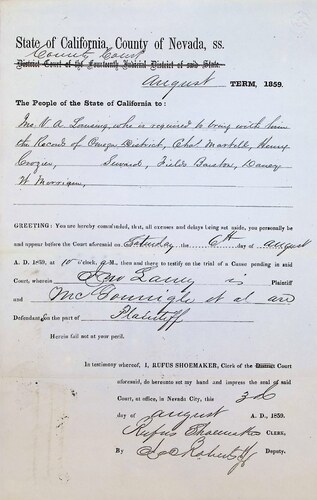 State of California, County of Nevada, ss.
County Court
District Court of the Fourteenth Judicial District of said State.
August TERM, 1859.
The People of the State of California to:
A. Lansing, who is required to bring with him
the Record of Omega District, Chas Martell, Henry
Crozier, Seward, Fields Barston, Dancy
W Morrison,
GREETING: You are hereby commanded, that, all excuses and delays being set aside, you personally be
and appear before the Court aforesaid on Saturday the 6th day of August
A. D. 1859, at 10 o'clock, A. M., then and there to testify on the trial of a Cause pending in said
Court, wherein Laney is Plaintiff
and McGonnigle et al are
Defendant, on the part of Plaintiff
Herein fail not at your peril.
In testimony whereof, I, RUFUS SHOEMAKER, Clerk of the District Court
aforesaid, do hereunto set my hand and impress the seal of said
Court, at office, in Nevada City, this 3d
day of August A. D., 1859.
Rufus Shoemaker CLERK,
By Deputy.